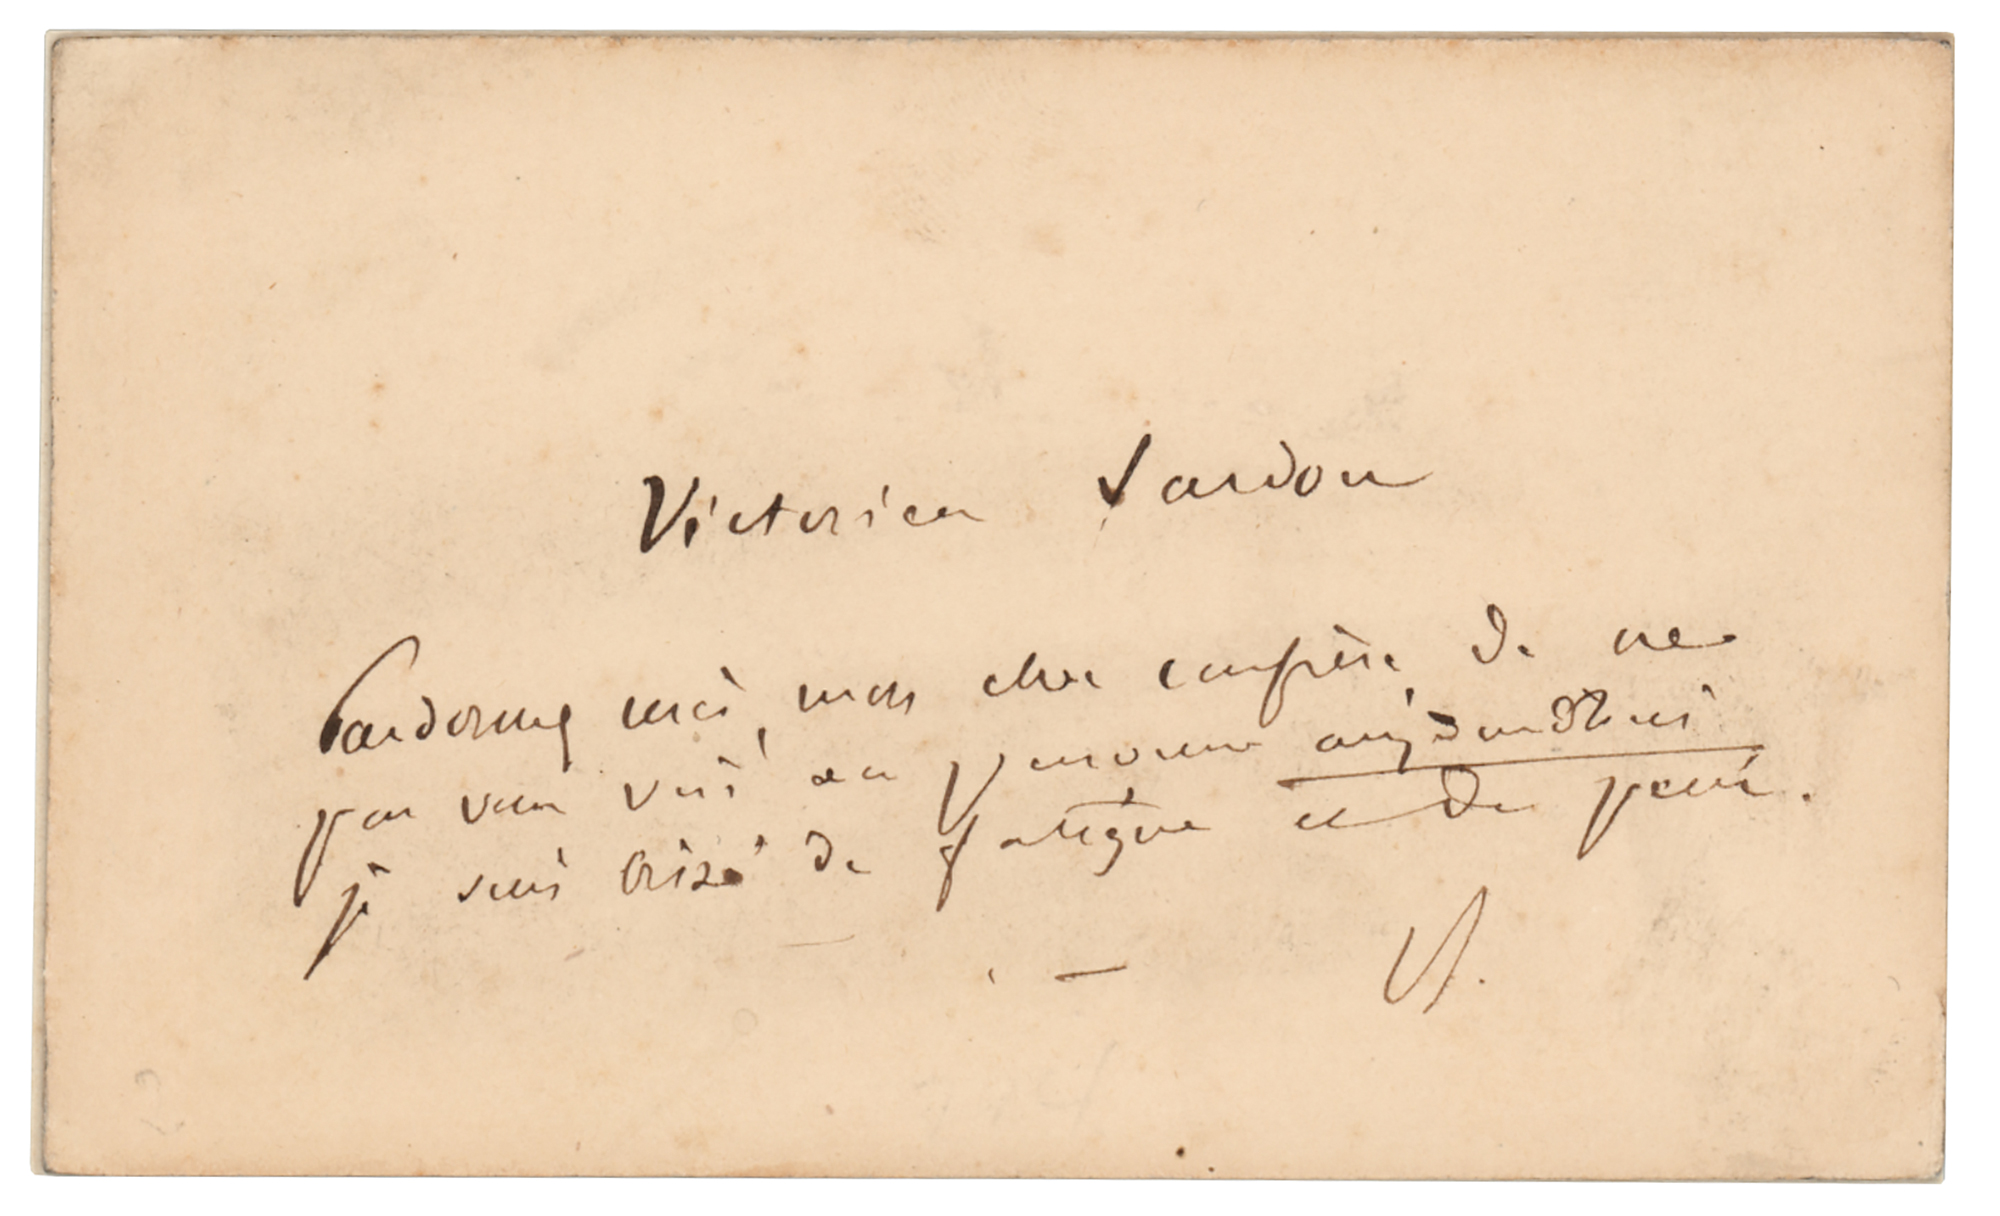 Victorien Sardou
Pardonnez moi, mon cher confrère, de ne
pas vous voir en personne aujourd'hui
je suis brisé de fatigue et de peine.
VS.